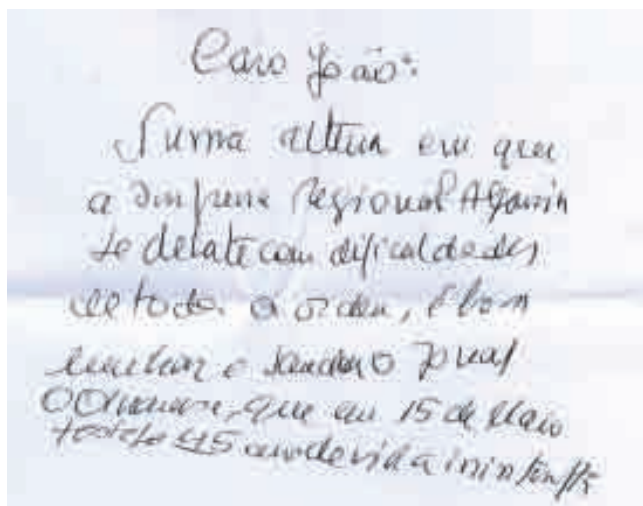 Caro João:
Numa altura em que
a Imprensa Regional Algarvia
se debate com dificuldades
de toda a ordem, é bom
lembrar e saudar o Jornal
que em 15 de Maio
45 anos de vida